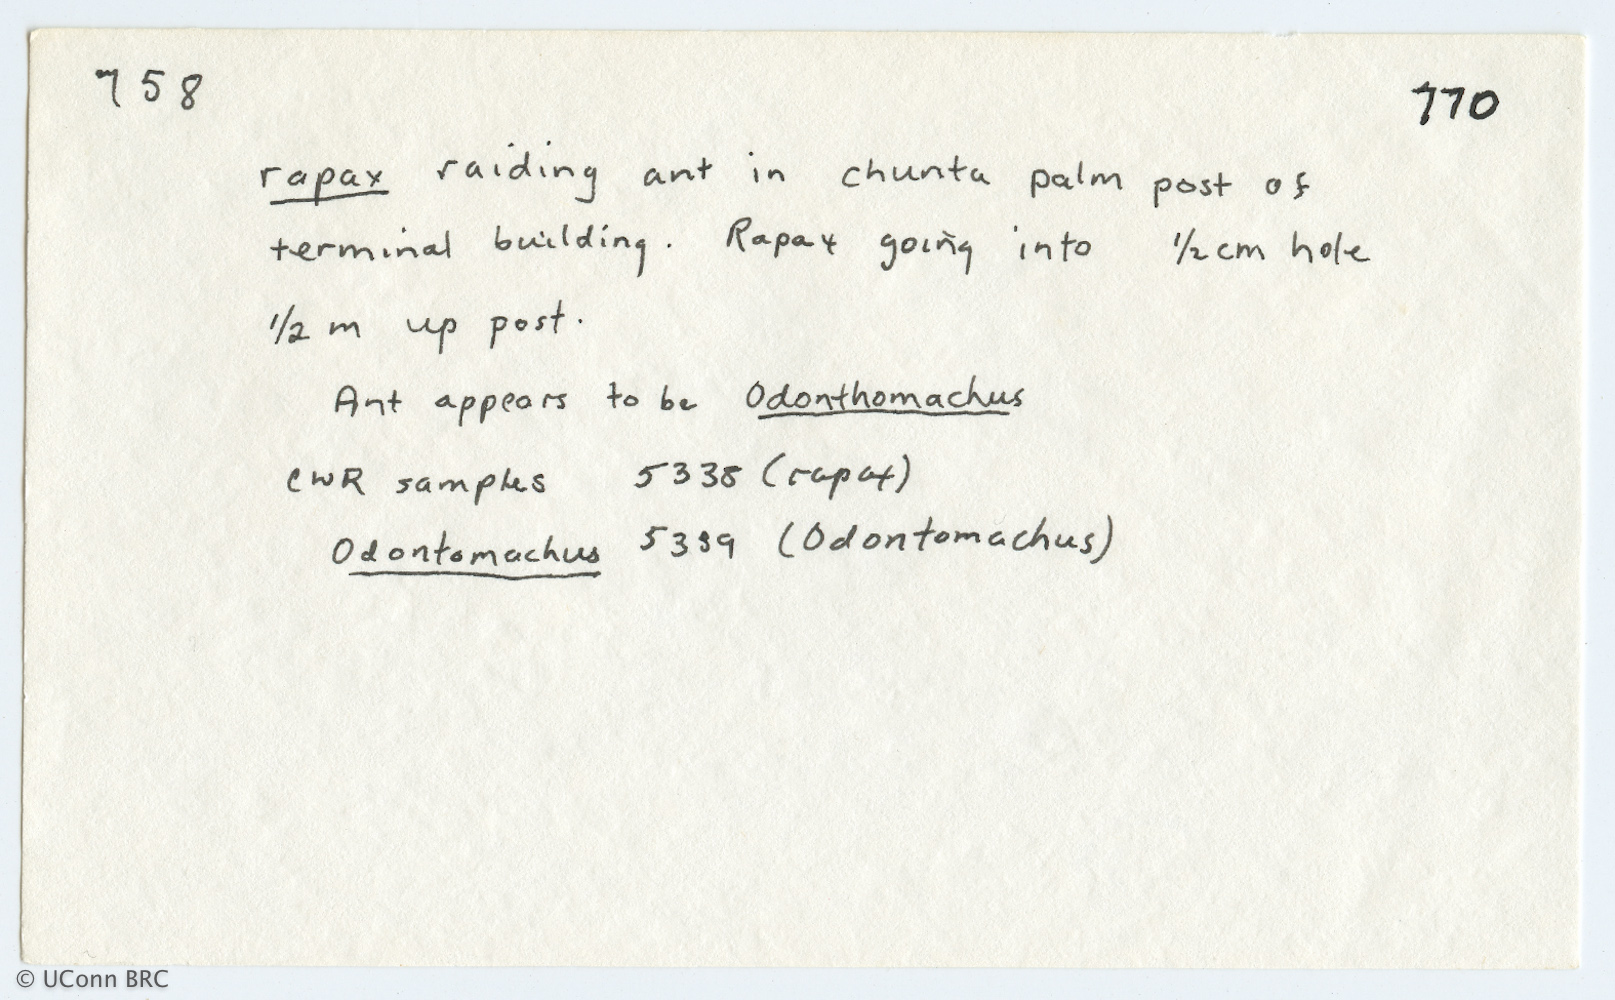 758 770
rapax raiding ant in chunta palm post of
terminal building. Rapax going into 1/2 cm hole
1/2 m up post.
Ant appears to be Odonthomachus
CWR samples 5338 (rapax)
Odontomachus 5339 (Odontomachus)
© UConn BRC